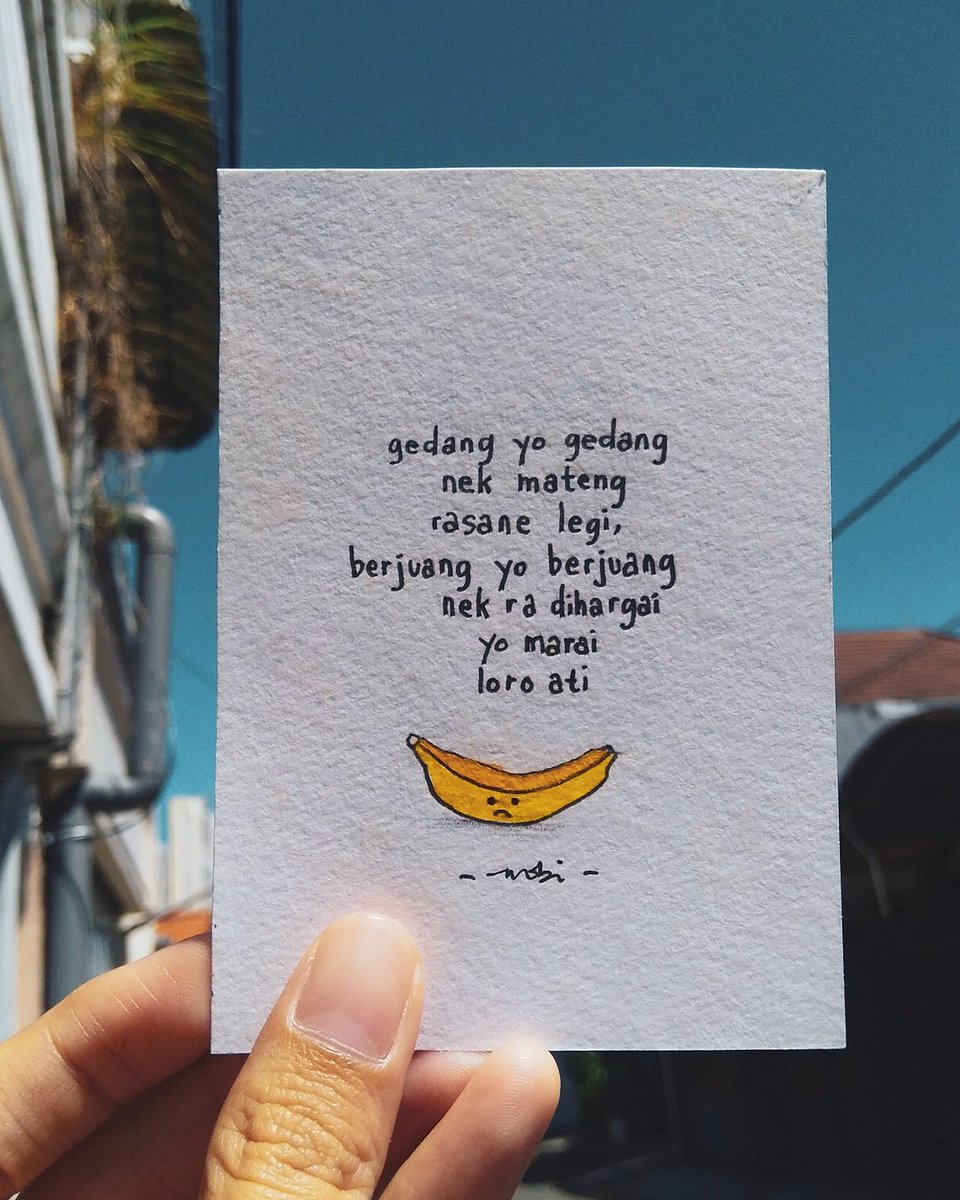 gedang yo gedang
nek mateng
rasane legi,
berjuang yo berjuang
nek ra dihargai
yo marai
loro ati